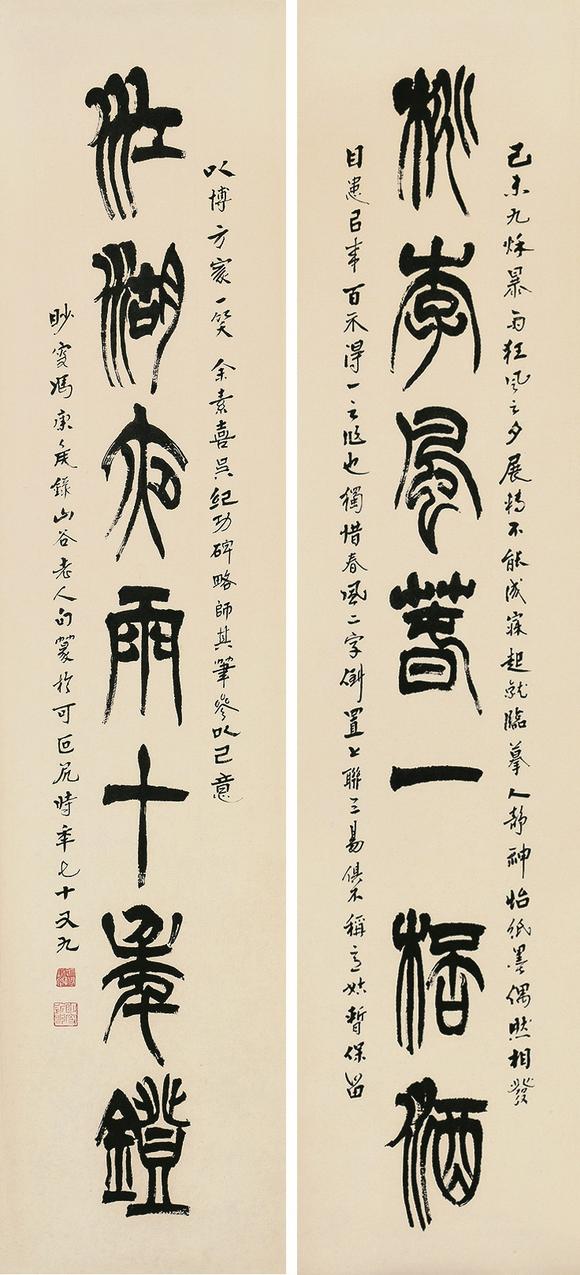 己未九秌暴雨狂風之夕展轉不能成寐起就臨摹人靜神怡紙墨偶然相發
桃李風春一桮酒
目患㠯來百不得一之作也獨惜春風二字倒置上聯三易俱不稱意姑暫保留
以博方家一笑 余素喜吳紀功碑略師其筆參以己意
江湖夜雨十年鐙
眇叟馮康矦錄山谷老人句篆於可叵凥時年七十又九